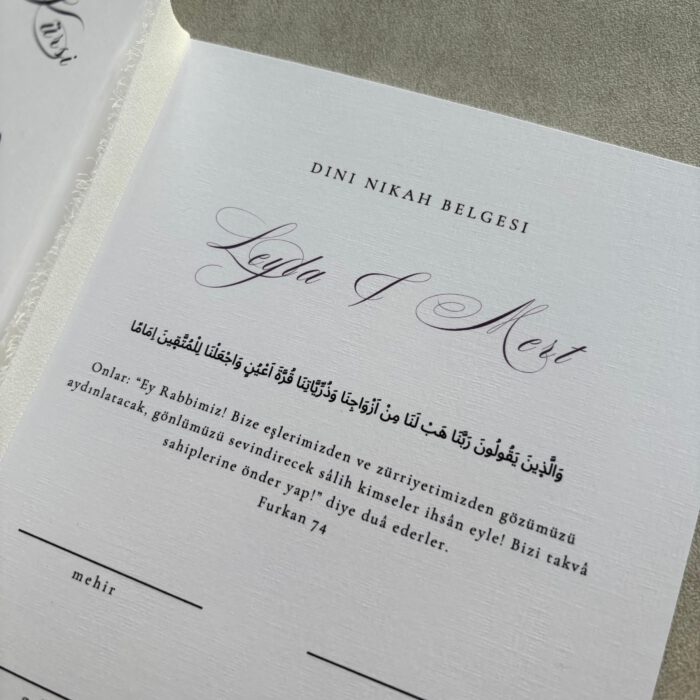 Kürsi
DINI NIKAH BELGESI
Leyla & Mert
وَالَّذِينَ يَقُولُونَ رَبَّنَا هَبْ لَنَا مِنْ اَزْوَاجِنَا وَذُرِّيَّاتِنَا قُرَّةَ اَعْيُنٍ وَاجْعَلْنَا لِلْمُتَّقِينَ اِمَامًا
Onlar: “Ey Rabbimiz! Bize eşlerimizden ve zürriyetimizden gözümüzü
aydınlatacak, gönlümüzü sevindirecek sâlih kimseler ihsân eyle! Bizi takvâ
sahiplerine önder yap!” diye duâ ederler.
Furkan 74
mehir